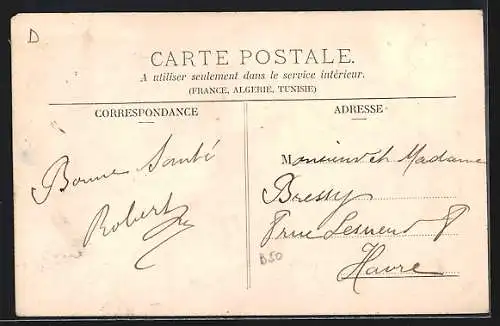 D
CARTE POSTALE.
A utiliser seulement dans le service intérieur.
(FRANCE, ALGERIE, TUNISIE)
CORRESPONDANCE
Bonne Santé
Robert
ADRESSE
Monsieur et Madame
Bressy
rue Lesueur
Havre
B50